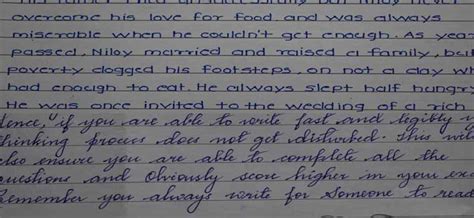 overcome his love for food and was always
miserable when he couldn't get enough. As years
passed, Niloy married and raised a family, but
poverty dogged his footsteps, on not a day w
had enough to eat. He always slept half hungry
He was once invited to the wedding of a rich
Hence, if you are able to write fast and legibly
thinking process does not get disturbed. This will
also ensure you are able to complete all the
questions and obviously score higher in your exa
Remember you always write for someone to read